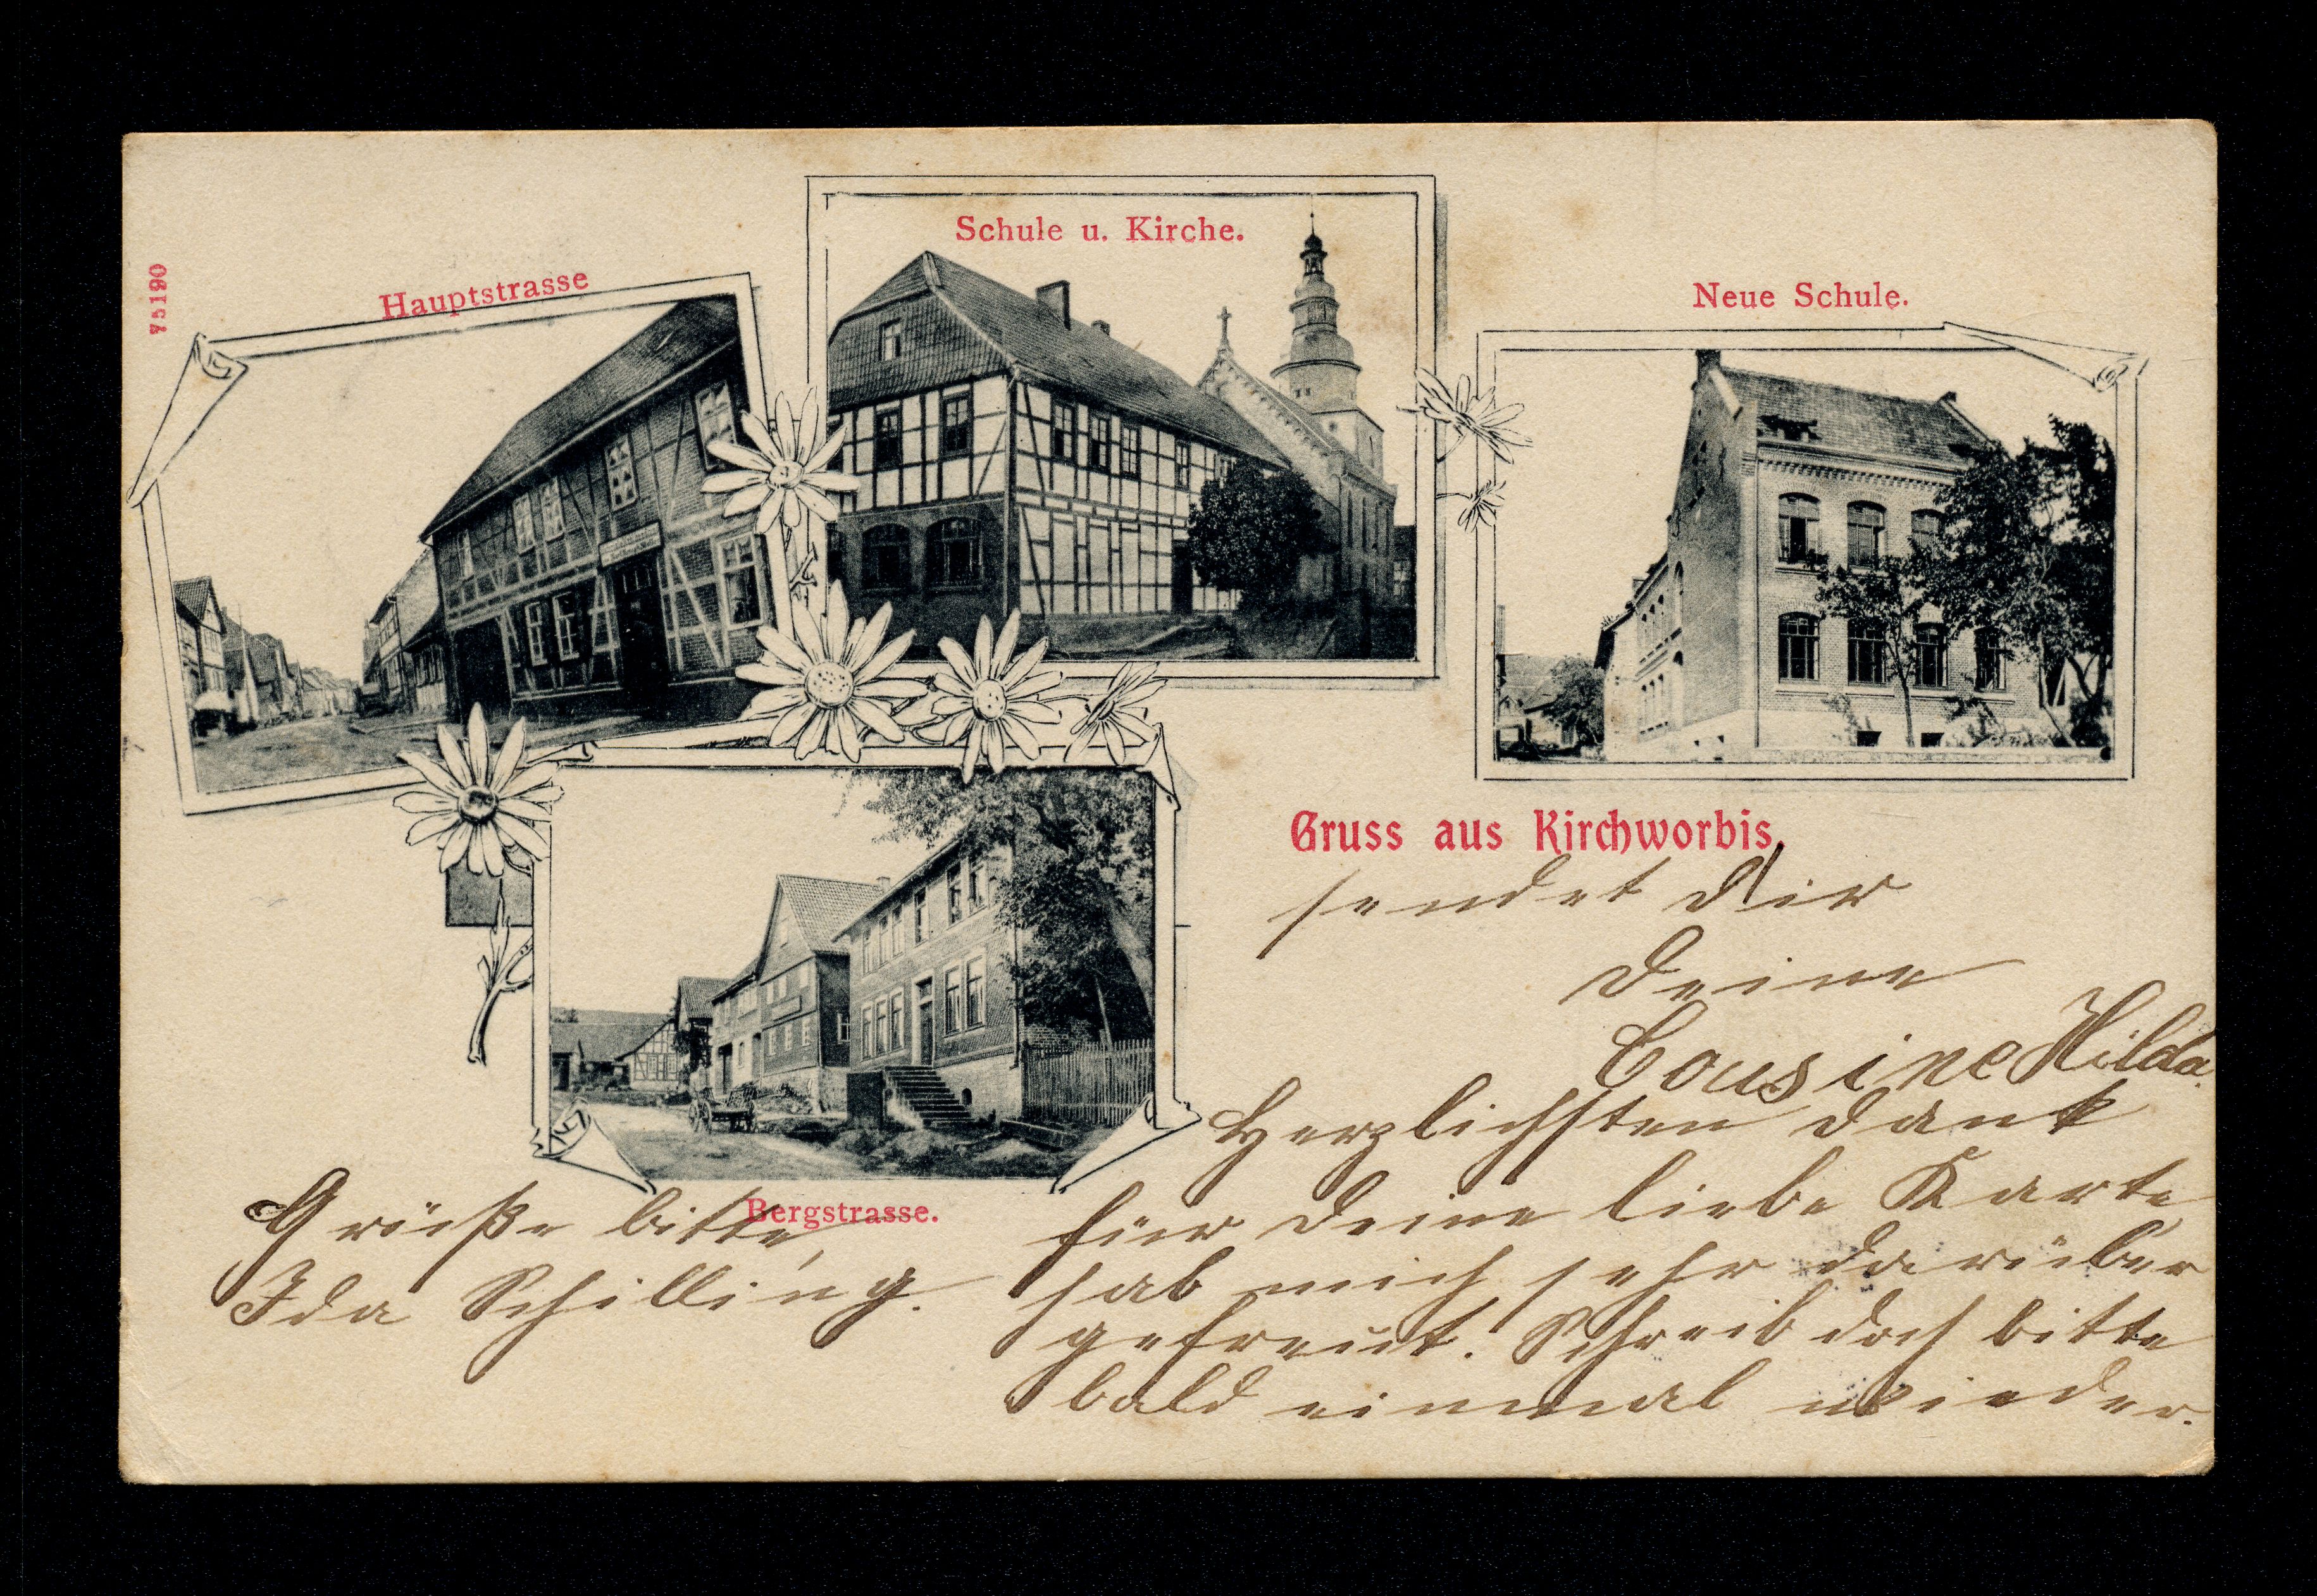 75190
Hauptstrasse
Schule u. Kirche.
Neue Schule.
Gruss aus Kirchworbis,
sendet Dir
Deine
Cousine Hilda.
Herzlichsten Dank
für Deine liebe Karte
hab mich sehr darüber
gefreut. Schreib doch bitte
bald einmal wieder.
Bergstrasse.
Grüße bitte,
Ida Schilling.